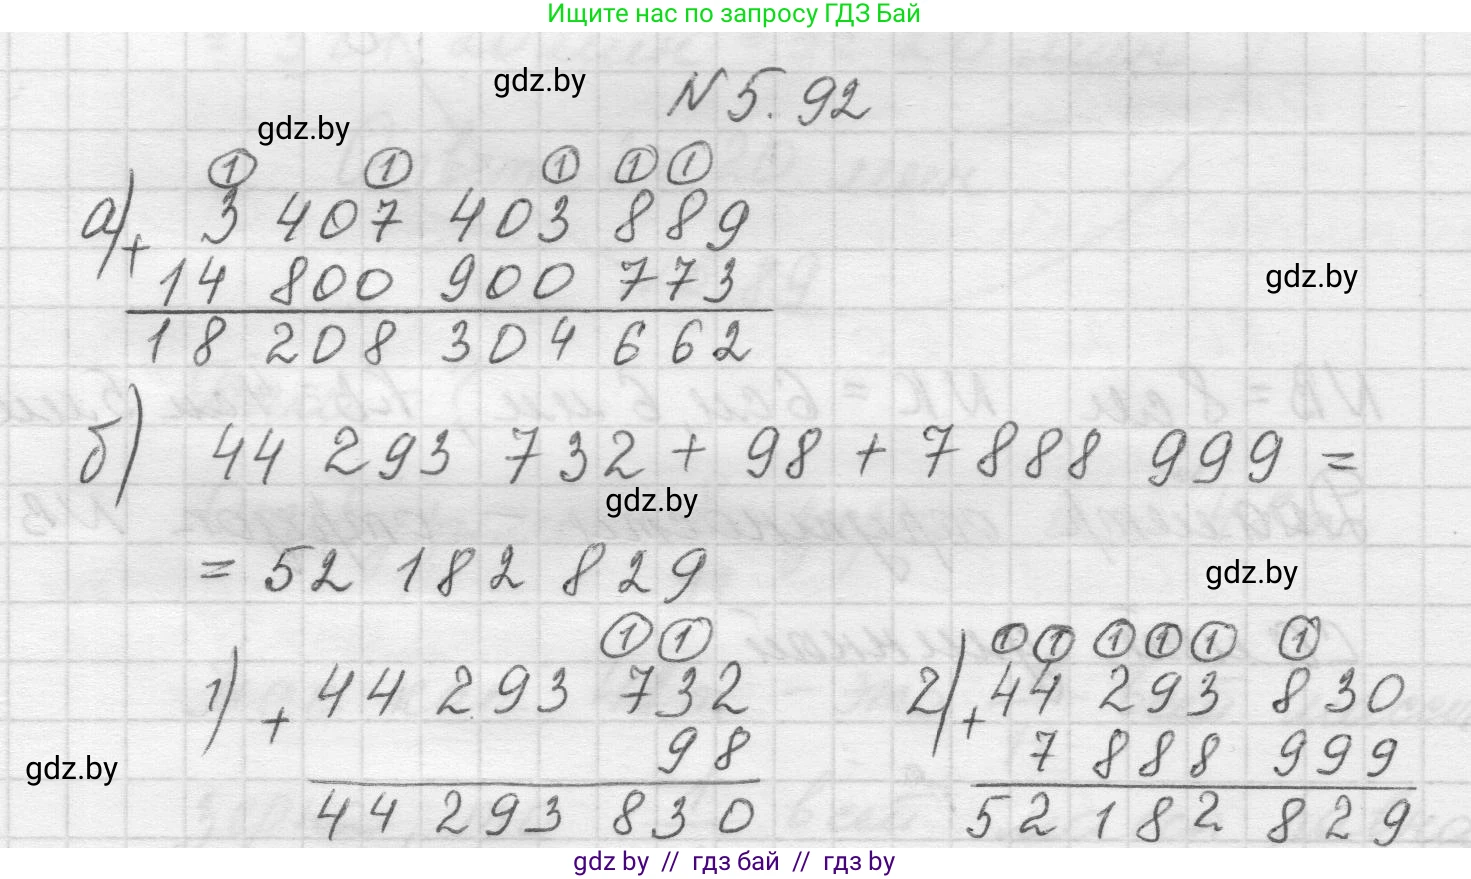 Ищите нас по запросу ГДЗ Бай
gdz.by
N 5. 92
gdz.by
1 1 1 1 1
а) + 3 407 403 889
14 800 900 773
gdz.by
18 208 304 662
б) 44 293 732 + 98 + 7 888 999 =
gdz.by
= 52 182 829
gdz.by
1 1
1) + 44 293 732
98
44 293 830
1 1 1 1 1 1
2) + 44 293 830
7 888 999
52 182 829
gdz.by
gdz by // гдз бай // гдз by